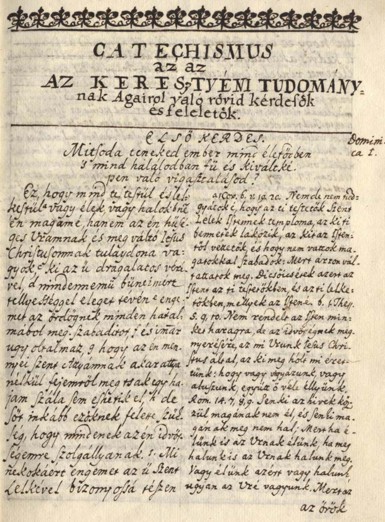 CATECHISMUS
az az
AZ KERESZTYÉNI TUDOMÁNY-
nak Ágairol való rövid kérdesök
es feleletök.
ELSÖ KÉRDÉS.
Domini-
ca 1.
Mitsoda teneked ember mint életödben
s mind halalodban
pen való vigasztalásod?
Ez, hogy mind testestül és lel-
kestül vagy élek vagy halok
én magamé, hanem az én hüse-
ges Uramnak és meg valto Jesus
Christusomnak tulaydona va-
gyok: ki az ü dragalatos véré-
vel, mindennemü büneimre
tellyességgel eleget tevén enge-
met az ördögnek minden hatal-
mából meg szabaditot, és
ugy oltalmaz, hogy az én men-
nyei szent Atyamnak akarattya
nélkül fejemröl tsak egy ha-
jam szála sem eshetik el: de
söt inkabb ezöknek felette szük-
ség, hogy mindenek az én idvös-
segemre szolgallyanak. Mi-
nekokáért engemet az ü Szent
Lelkével bizonyossá tészen
1 Kor. 6. v. 19. 20. Nemde nem tud-
gyátok, hogy az ti testetök Szent
Lélek Istennek temploma, az ki ti
bennetök lakózik, az kit az Isten-
töl vettetök, és hogy nem vattok ma-
gatokkal szabadok: Mert áron vál-
tattatok meg. Dicsöitsétök azért az
Istent az ti testötökben, és az ti lelke-
tökben, mellyek az Istené. 1. Thes.
5. 9. 10. Nem rendelt az Isten min-
ket haragra, de az idvösségnek meg
nyerésére, az mi Urunk Jesus Chri-
stus által, az ki meg hólt mi éret-
tünk: hogy vagy vigyázunk, vagy
aluszunk, együtt ö vele éllyünk.
Rom. 14. 7. 8. 9. Senki az hivek köz-
zül magának nem él, és senki ma-
gának meg nem hal; Mert ha é-
lünk is az Urnak élünk, ha meg
halunk is az Urnak halunk meg.
Vagy élünk azért vagy halunk,
ugyan az Uré vagyunk. Mert az
az örök